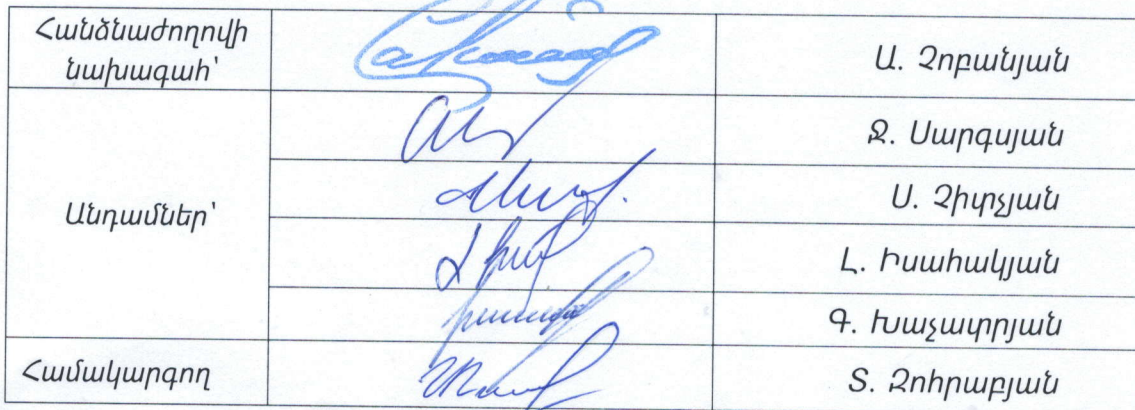 Հանձնաժողովի
նախագահ՝
Ա. Չոբանյան
Անդամներ՝
Ջ. Սարգսյան
Ս. Չիտչյան
Լ. Իսահակյան
Գ. Խաչատրյան
Համակարգող
Տ. Զոհրաբյան